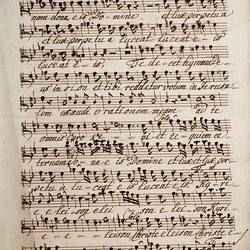 nam dona eis Domine et lux perpetua
et lux perpetua luceat luceat eis
luceat eis Te decet hymnus De
us in sion et tibi reddetur votum in Jerusa
lem exaudi orationem meam
omnis caro
ternam dona eis Domine et lux et lux per
petua luceat eis luceat eis Ky rie
e lei son elei son elei son Kyri
e e leison Christe eleison Christe e